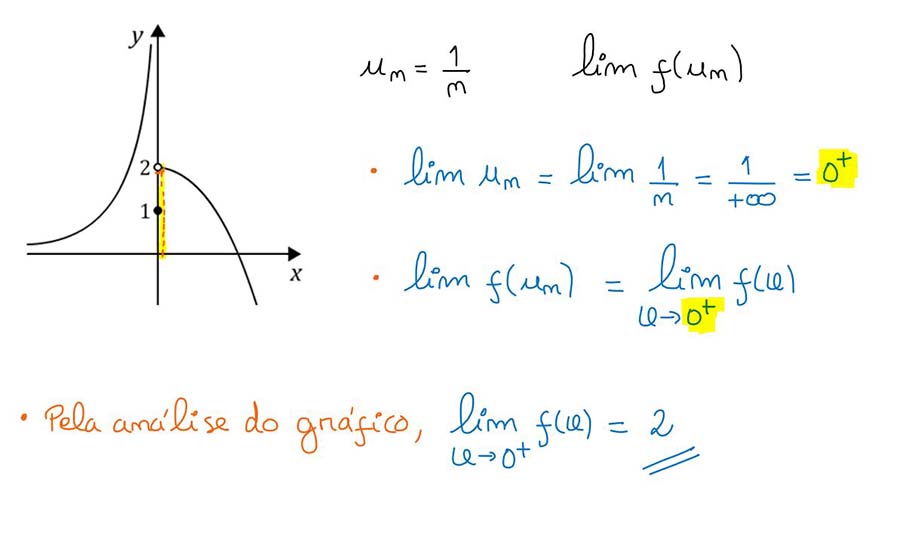 y
2
1
x
uₙ = 1/n lim f(uₙ)
• lim uₙ = lim 1/n = 1/+∞ = 0⁺
• lim f(uₙ) = lim f(x)
x→0⁺
• Pela análise do gráfico, lim f(x) = 2
x→0⁺